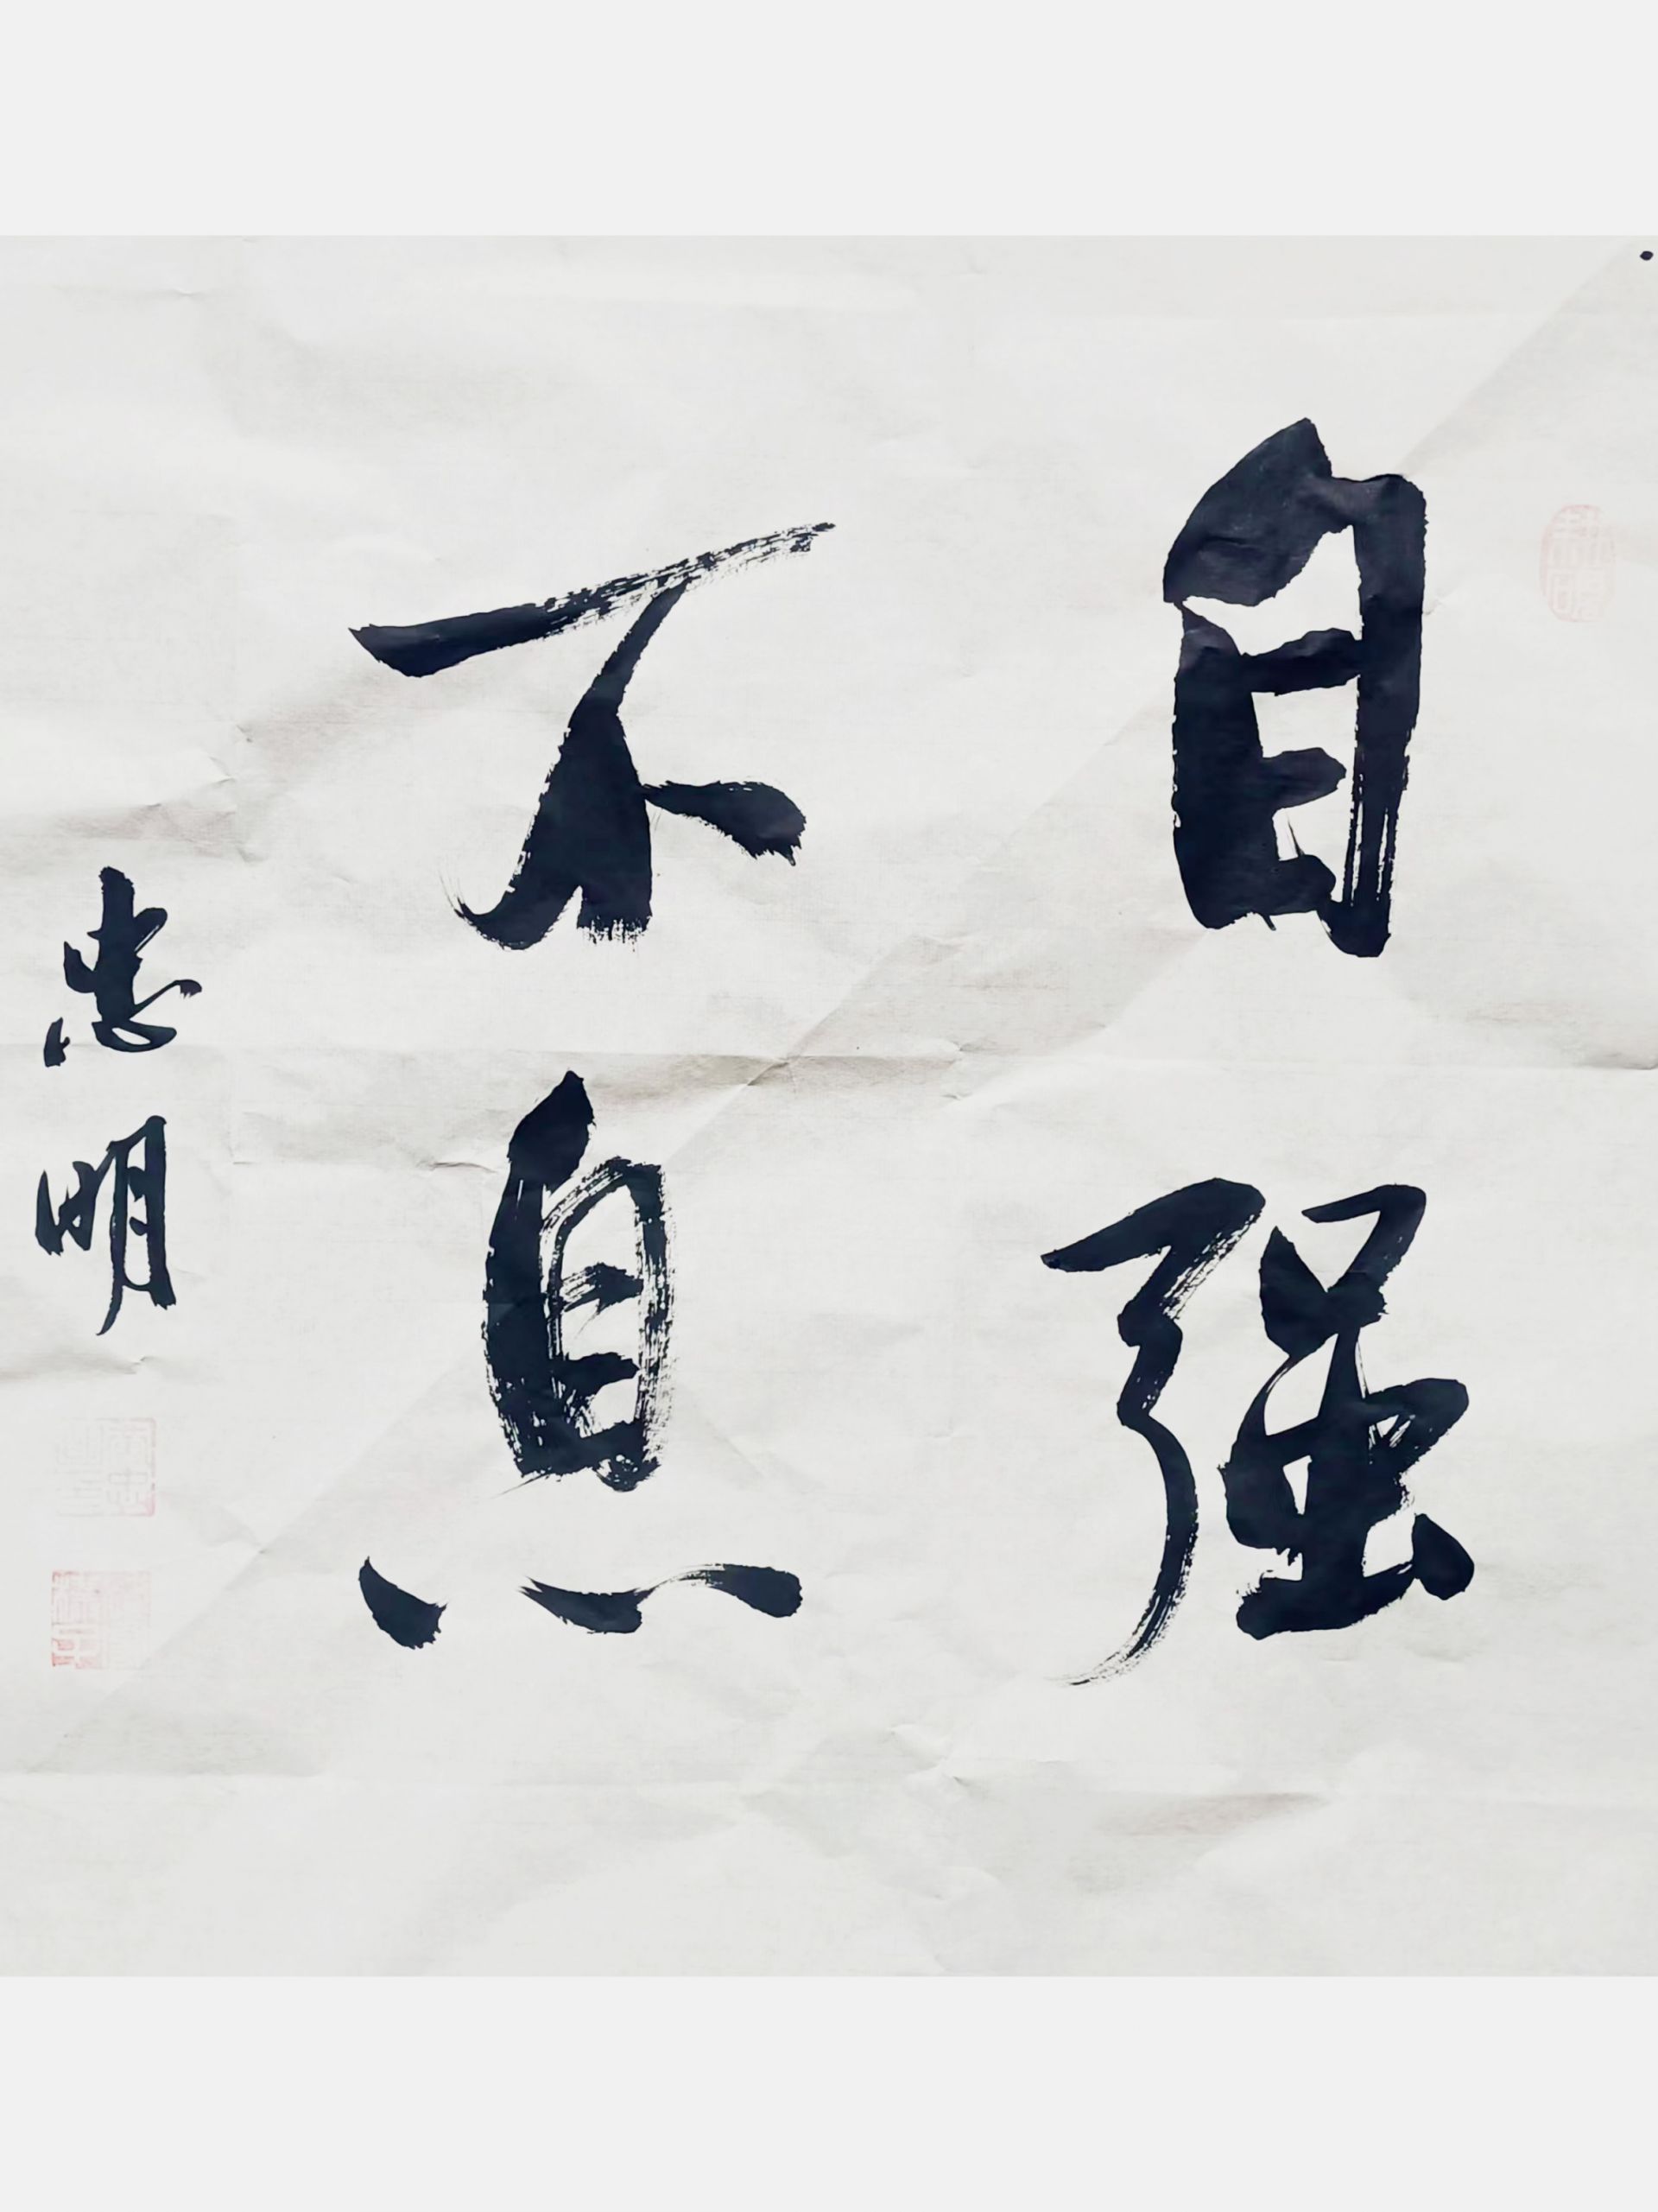 自强
不息
忠明